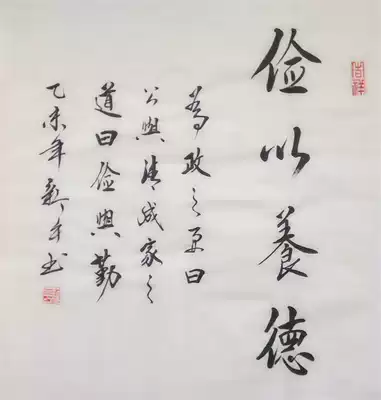 吉祥
俭以養德
為政之要曰
公與清成家之
道曰俭與勤
乙未年新书